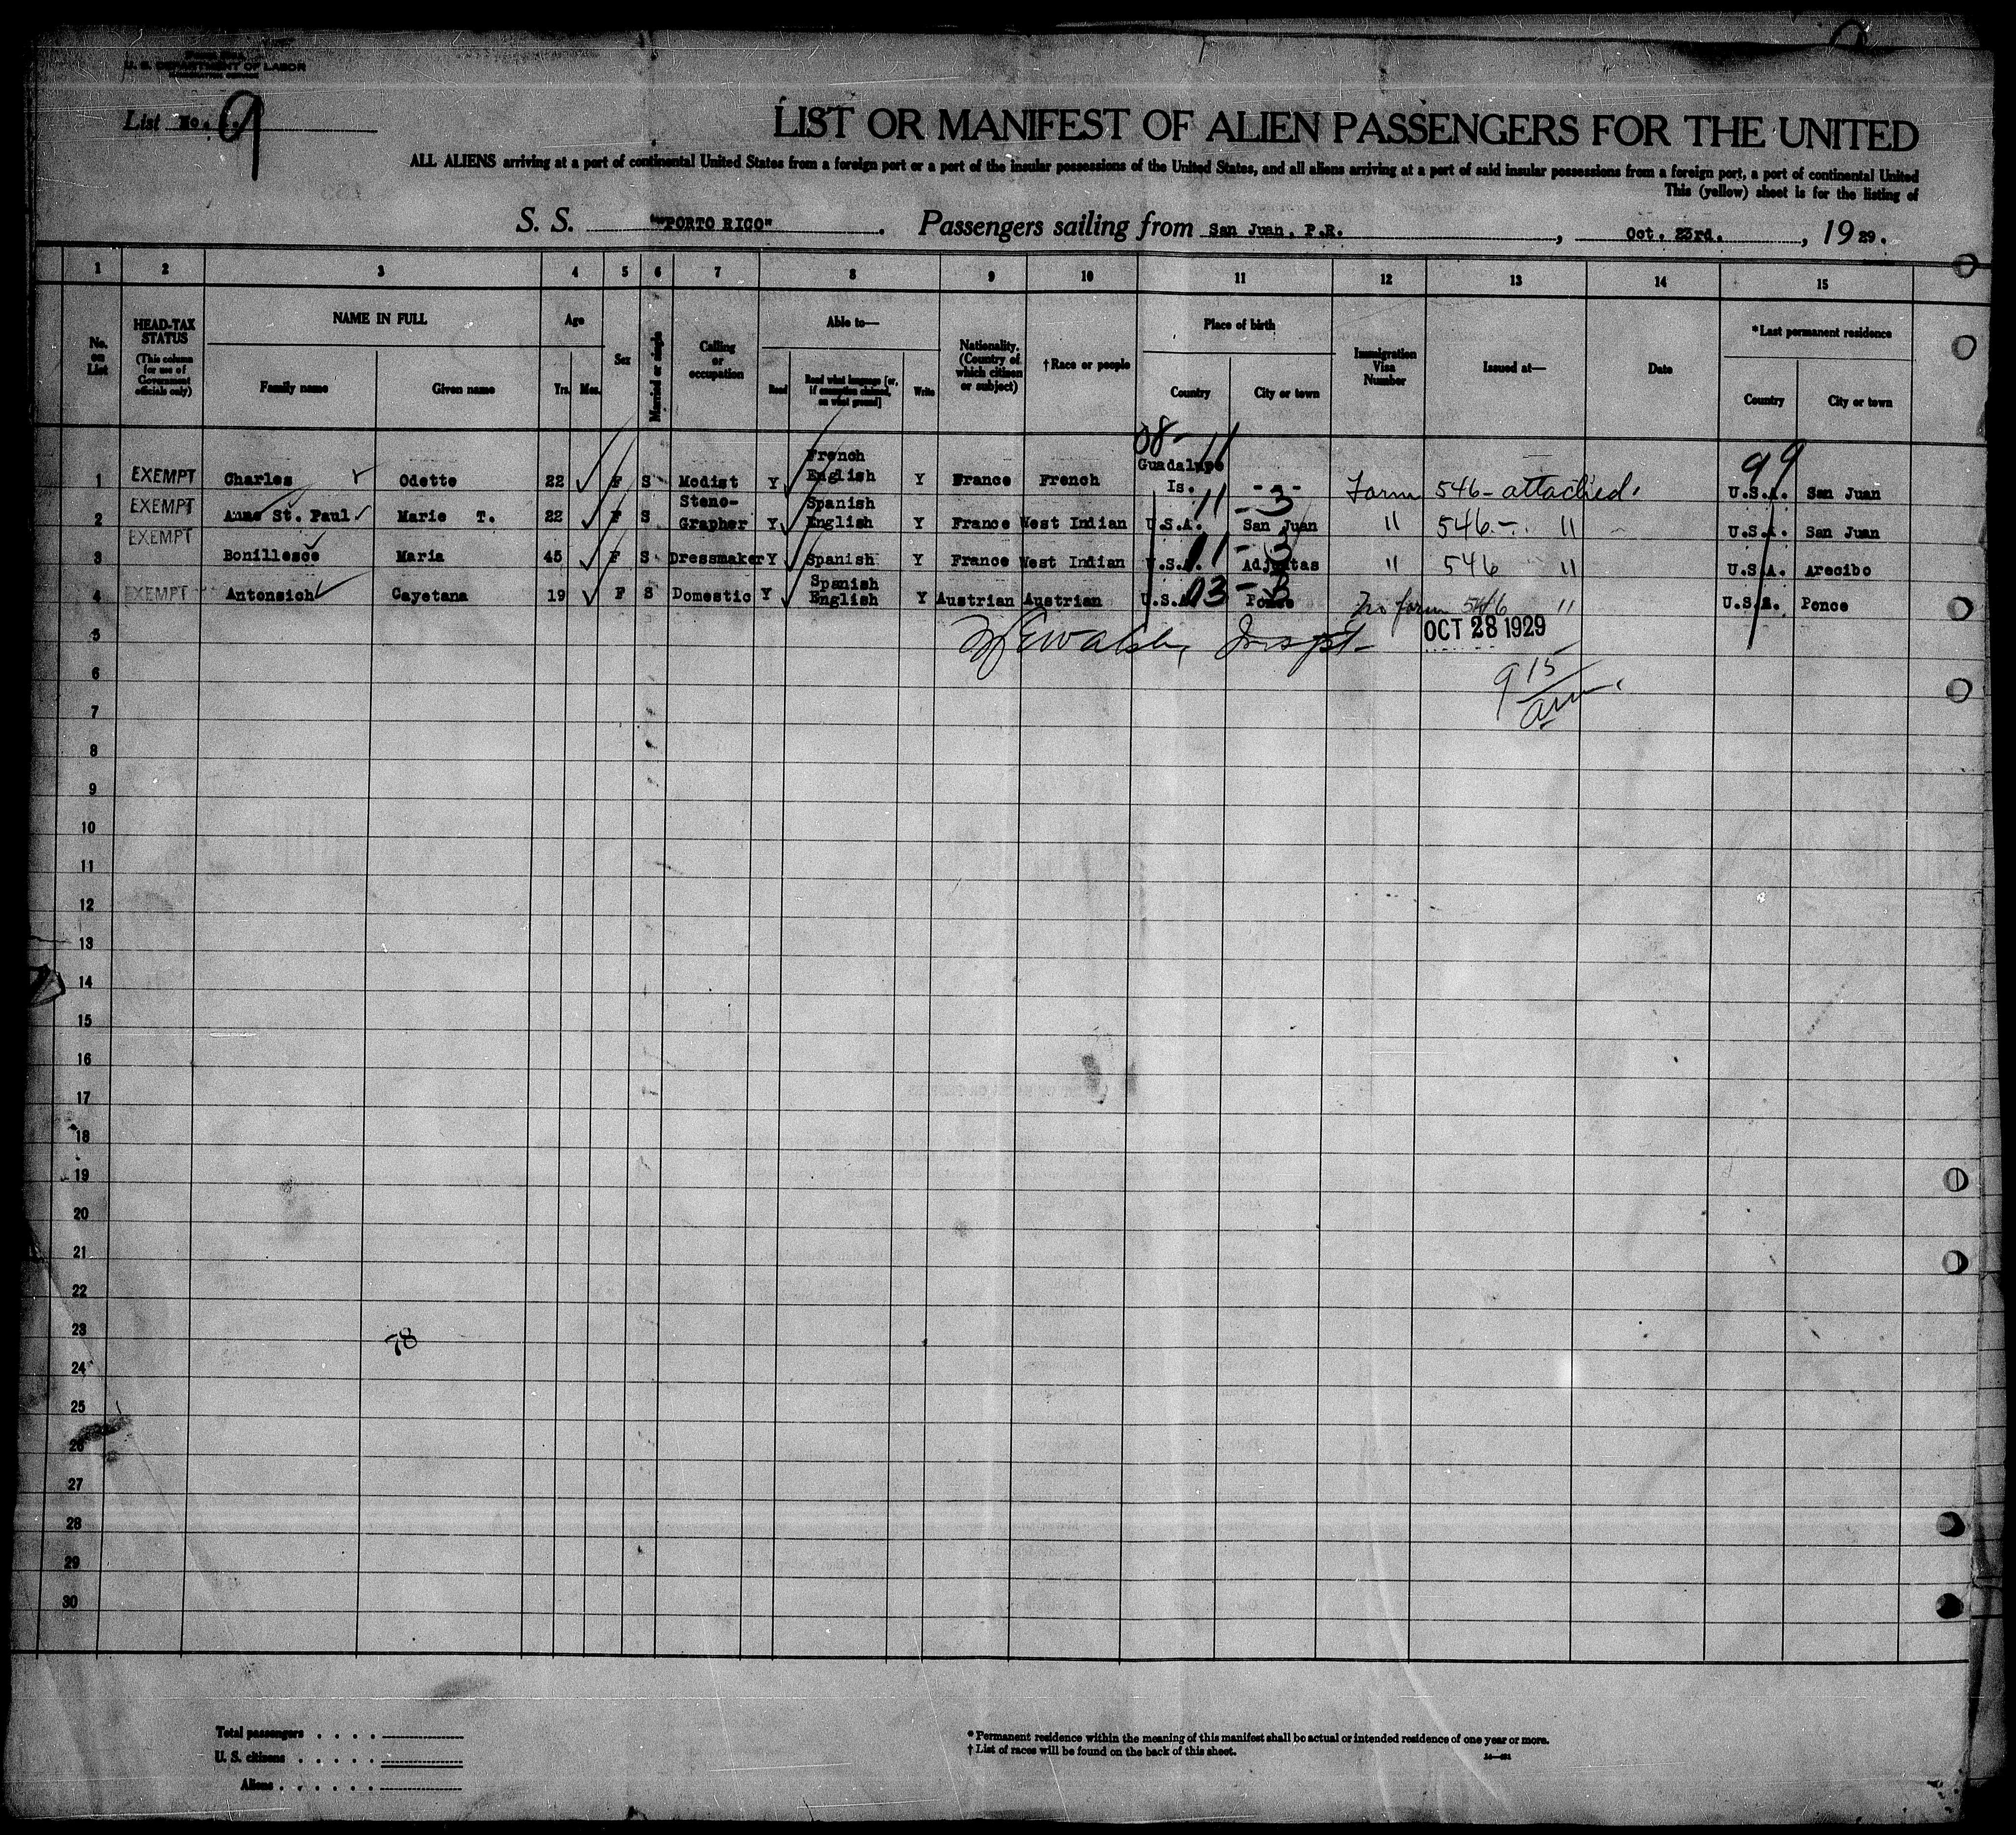 U. S. DEPARTMENT OF LABOR
List No. 9
LIST OR MANIFEST OF ALIEN PASSENGERS FOR THE UNITED
ALL ALIENS arriving at a port of continental United States from a foreign port or a port of the insular possessions of the United States, and all aliens arriving at a port of said insular possessions from a foreign port, a port of continental United
This (yellow) sheet is for the listing of
S. S. "PORTO RICO". Passengers sailing from San Juan, P.R., Oct. 23rd., 1929.
1 2 3 4 5 6 7 8 9 10 11 12 13 14 15
No. on List
HEAD-TAX STATUS (This column for use of Government officials only)
NAME IN FULL
Family name Given name
Age
Yrs. Mos.
Sex
Married or single
Calling or occupation
Able to—
Read Read what language [or, if exemption claimed, on what ground] Write
Nationality. (Country of which citizen or subject)
†Race or people
Place of birth
Country City or town
Immigration Visa Number
Issued at—
Date
*Last permanent residence
Country City or town
08- 11 99
1 EXEMPT Charles Odette 22 F S Modist Y French English Y France French Guadalupe Is. --- Form 546- attached. U.S.A. San Juan
11 - 3
2 EXEMPT Anne St. Paul Marie T. 22 F S Steno-Grapher Y Spanish English Y France West Indian U.S.A. San Juan " 546-. " U.S.A. San Juan
11 - 3
3 EXEMPT Bonillesce Maria 45 F S Dressmaker Y Spanish Y France West Indian U.S.A. Adjuntas " 546 " U.S.A. Arecibo
03 - 3
4 EXEMPT Antonsich Cayetana 19 F S Domestic Y Spanish English Y Austrian Austrian U.S.A. Ponce No form 546 " U.S.A. Ponce
5 Walsh, Inspt- OCT 28 1929
6 9 15 am.
7
8
9
10
11
12
13
14
15
16
17
18
19
20
21
22
23 78
24
25
26
27
28
29
30
Total passengers
U. S. citizens
Aliens
* Permanent residence within the meaning of this manifest shall be actual or intended residence of one year or more.
† List of races will be found on the back of this sheet.